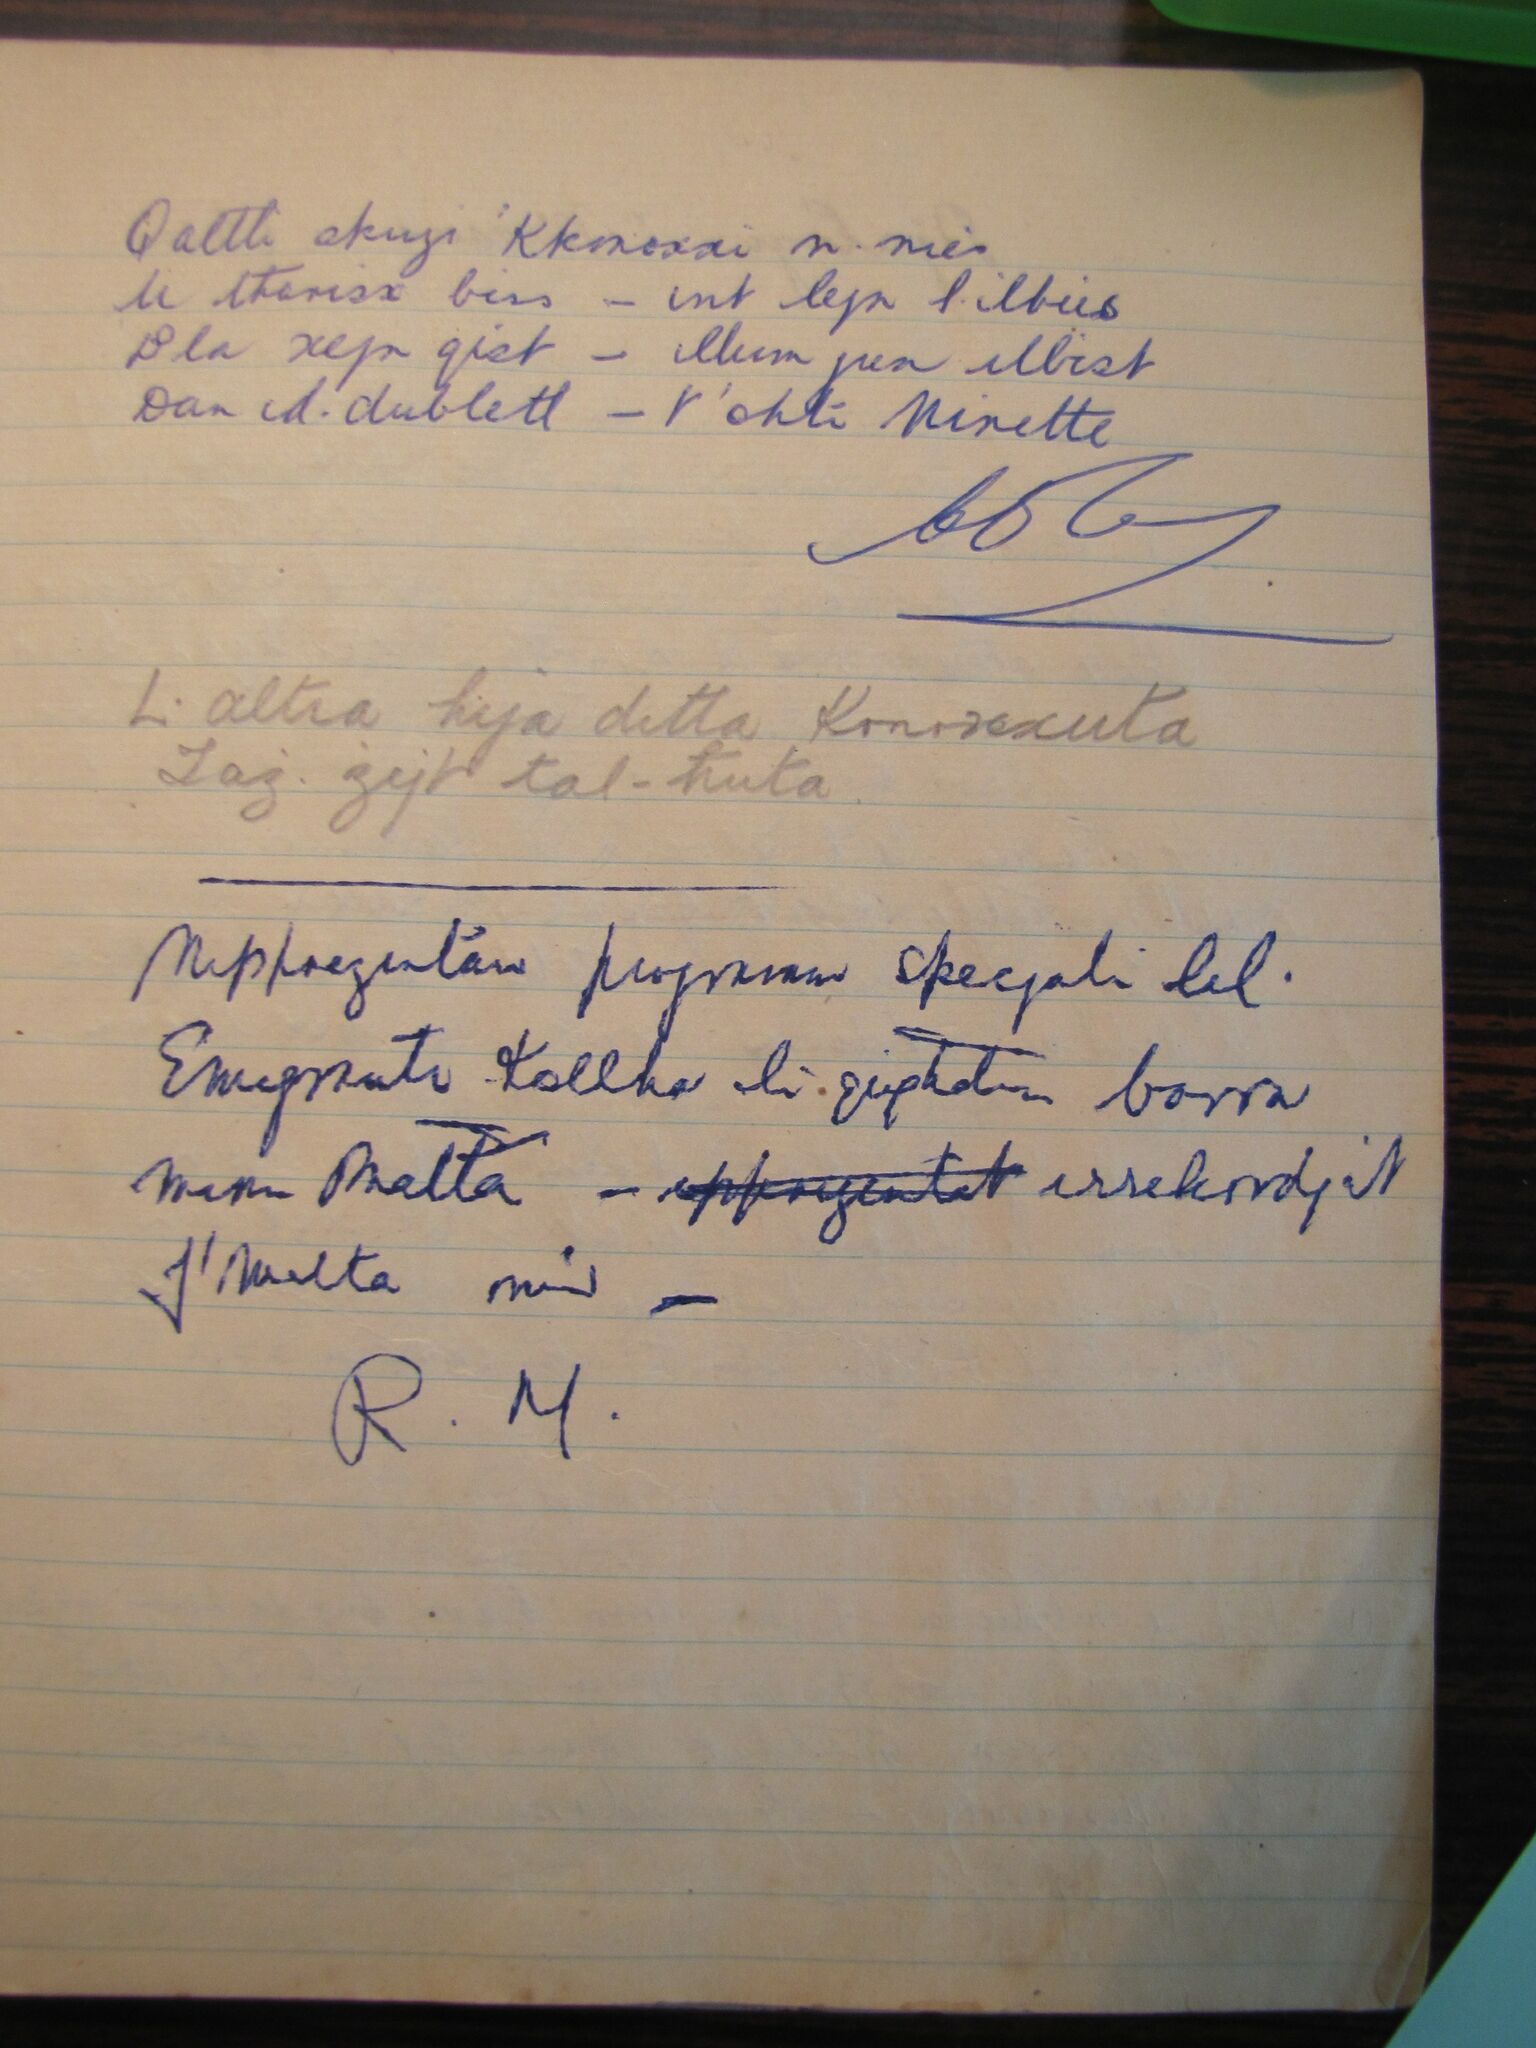 Qaltli skuzi Kkonoxxi n-nies
U tharisx biss – int lejn l-ilbies
Dla xejn gist – illum jien illbist
Dan id-dublett – t'ohti Ninette
L-altra hija ditta Konoxxuta
Taż-żejt tal-Ħuta
Nippreżentaw programm speċjali lil-
Emigranti Kollha li jinżabu barra
minn Malta – ippreżentat irrekordjat
f'Malta
R. M.